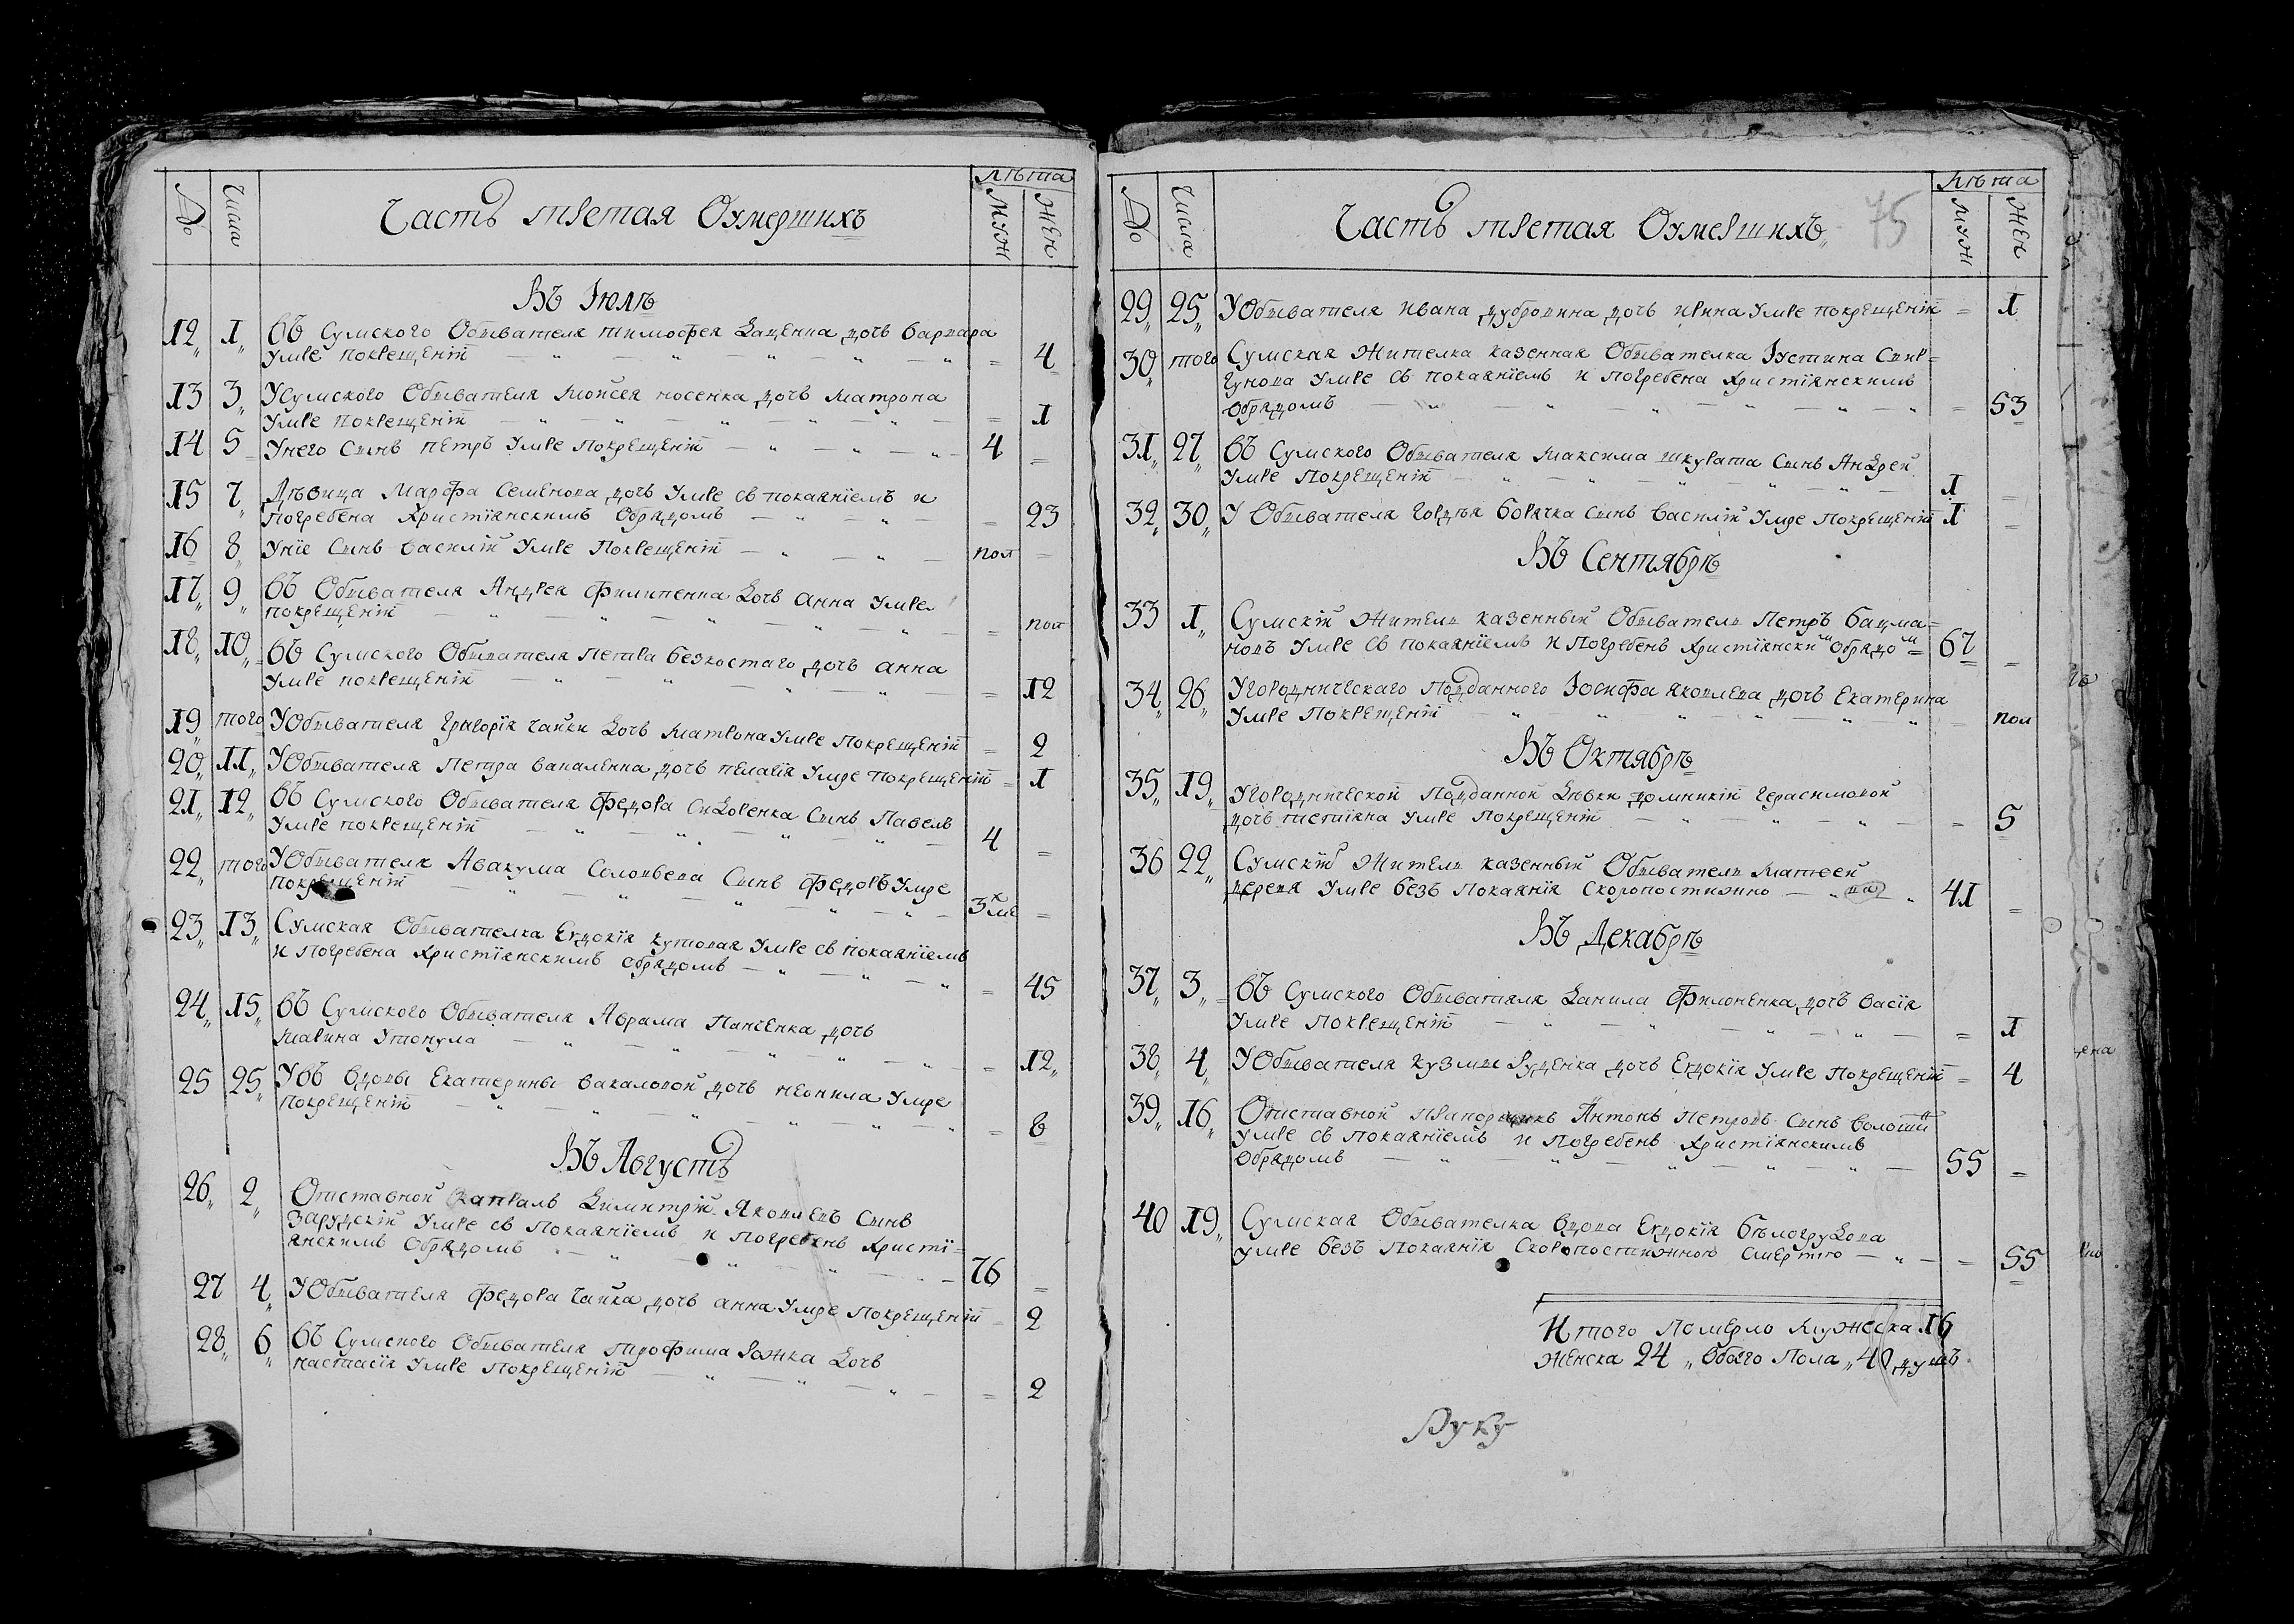 № Числа Часть третая Оумершихъ Лѣта Муж Жен
Въ Іюлѣ
12 1 въ Сумского Обывателя тимофея дочь варвара
умре покрещеніи 4
13 3 Усумского Обывателя Моисея носенка дочь матрона
умре покрещеніи 1
14 5 Унего Сынъ петръ Умре покрещеніи 4
15 7 Дѣвица Марфа Семенова дочь Умре съ покаяніемъ и
погребена христіянскимъ Обрядомъ 23
16 8 Унее Сынъ василій Умре Покрещеніи пол
17 9 въ Обывателя Андрея филипенка дочь анна Умре
покрещеніи пол
18 10 въ Сумского Обывателя петра безкостаго дочь анна
умре покрещеніи 12
19 того УОбывателя григорія чайки дочь матрона Умре Покрещеніи 2
20 11 УОбывателя Петра дочь пелагія Умре покрещеніи 1
21 12 въ Сумского Обывателя федора сидоренка Сынъ Павелъ
умре покрещеніи 4
22 того УОбывателя Авакума Соловьева Сынъ федоръ Умре
покрещеніи
23 13 Сумская Обывателка Евдокія кутовая Умре съ покаяніемъ
и Погребена христіянскимъ обрядомъ 45
24 15 въ Сумского Обывателя Аврама Панченка дочь
Марина Утонула 12
25 25 Увъ вдовы Екатерины вакаловой дочь неонила Умре
покрещеніи 8
Въ Августѣ
26 2 Отставной капралъ Димитрій Яковлевъ Сынъ
Зарудскій Умре съ Покаяніемъ и Погребенъ христі=
янскимъ Обрядомъ 76
27 4 УОбывателя федора чайка дочь анна Умре Покрещеніи 2
28 6 въ Сумского Обывателя трофима Рожка дочь
настасія Умре Покрещеніи 2
№ Числа Часть третая Оумершихъ 75 Лѣта Муж Жен
29 25 УОбывателя ивана дубровина дочь ирина Умре покрещеніи 1
30 того Сумская жителка казенная Обывателка Іустина Свир=
гунова Умре съ покаяніемъ и погребена христіянскимъ
обрядомъ 53
31 27 въ Сумского Обывателя максима шкурата Сынъ Андрей
Умре Покрещеніи 1
32 30 У Обывателя гордѣя борячка сынъ василій Умре Покрещеніи 1
Въ Сентябрѣ
33 1 Сумскій житель казенный Обыватель Петръ бацма=
новъ Умре съ покаяніемъ и Погребенъ христіянскимъ Обрядомъ 67
34 26 Угородническаго Подданного Іосифа яковлева дочь Екатерина
Умре Покрещеніи пол
Въ Октябрѣ
35 19 Угороднической Подданной дѣвки домникіи герасимовой
дочь татіяна Умре Покрещеніи 5
36 22 Сумскій житель казенный Обыватель матвей
дереня Умре безъ Покаянія Скоропостижно 41
Въ Декабрѣ
37 3 въ Сумского Обывателя Данила филоненка дочь васія
Умре Покрещеніи 1
38 4 УОбывателя кузмы Руденка дочь Евдокія Умре Покрещеніи 4
39 16 Отставной Антонъ петровъ Сынъ
Умре съ Покаяніемъ и Погребенъ христіянскимъ
Обрядомъ 55
40 19 Сумская Обывателка вдова Евдокія бѣлогрудова
умре безъ Покаянія Скоропостижною Смертю 55
Итого Померло Мужеска 16
женска 24 обоего Пола 40 душъ
Руку